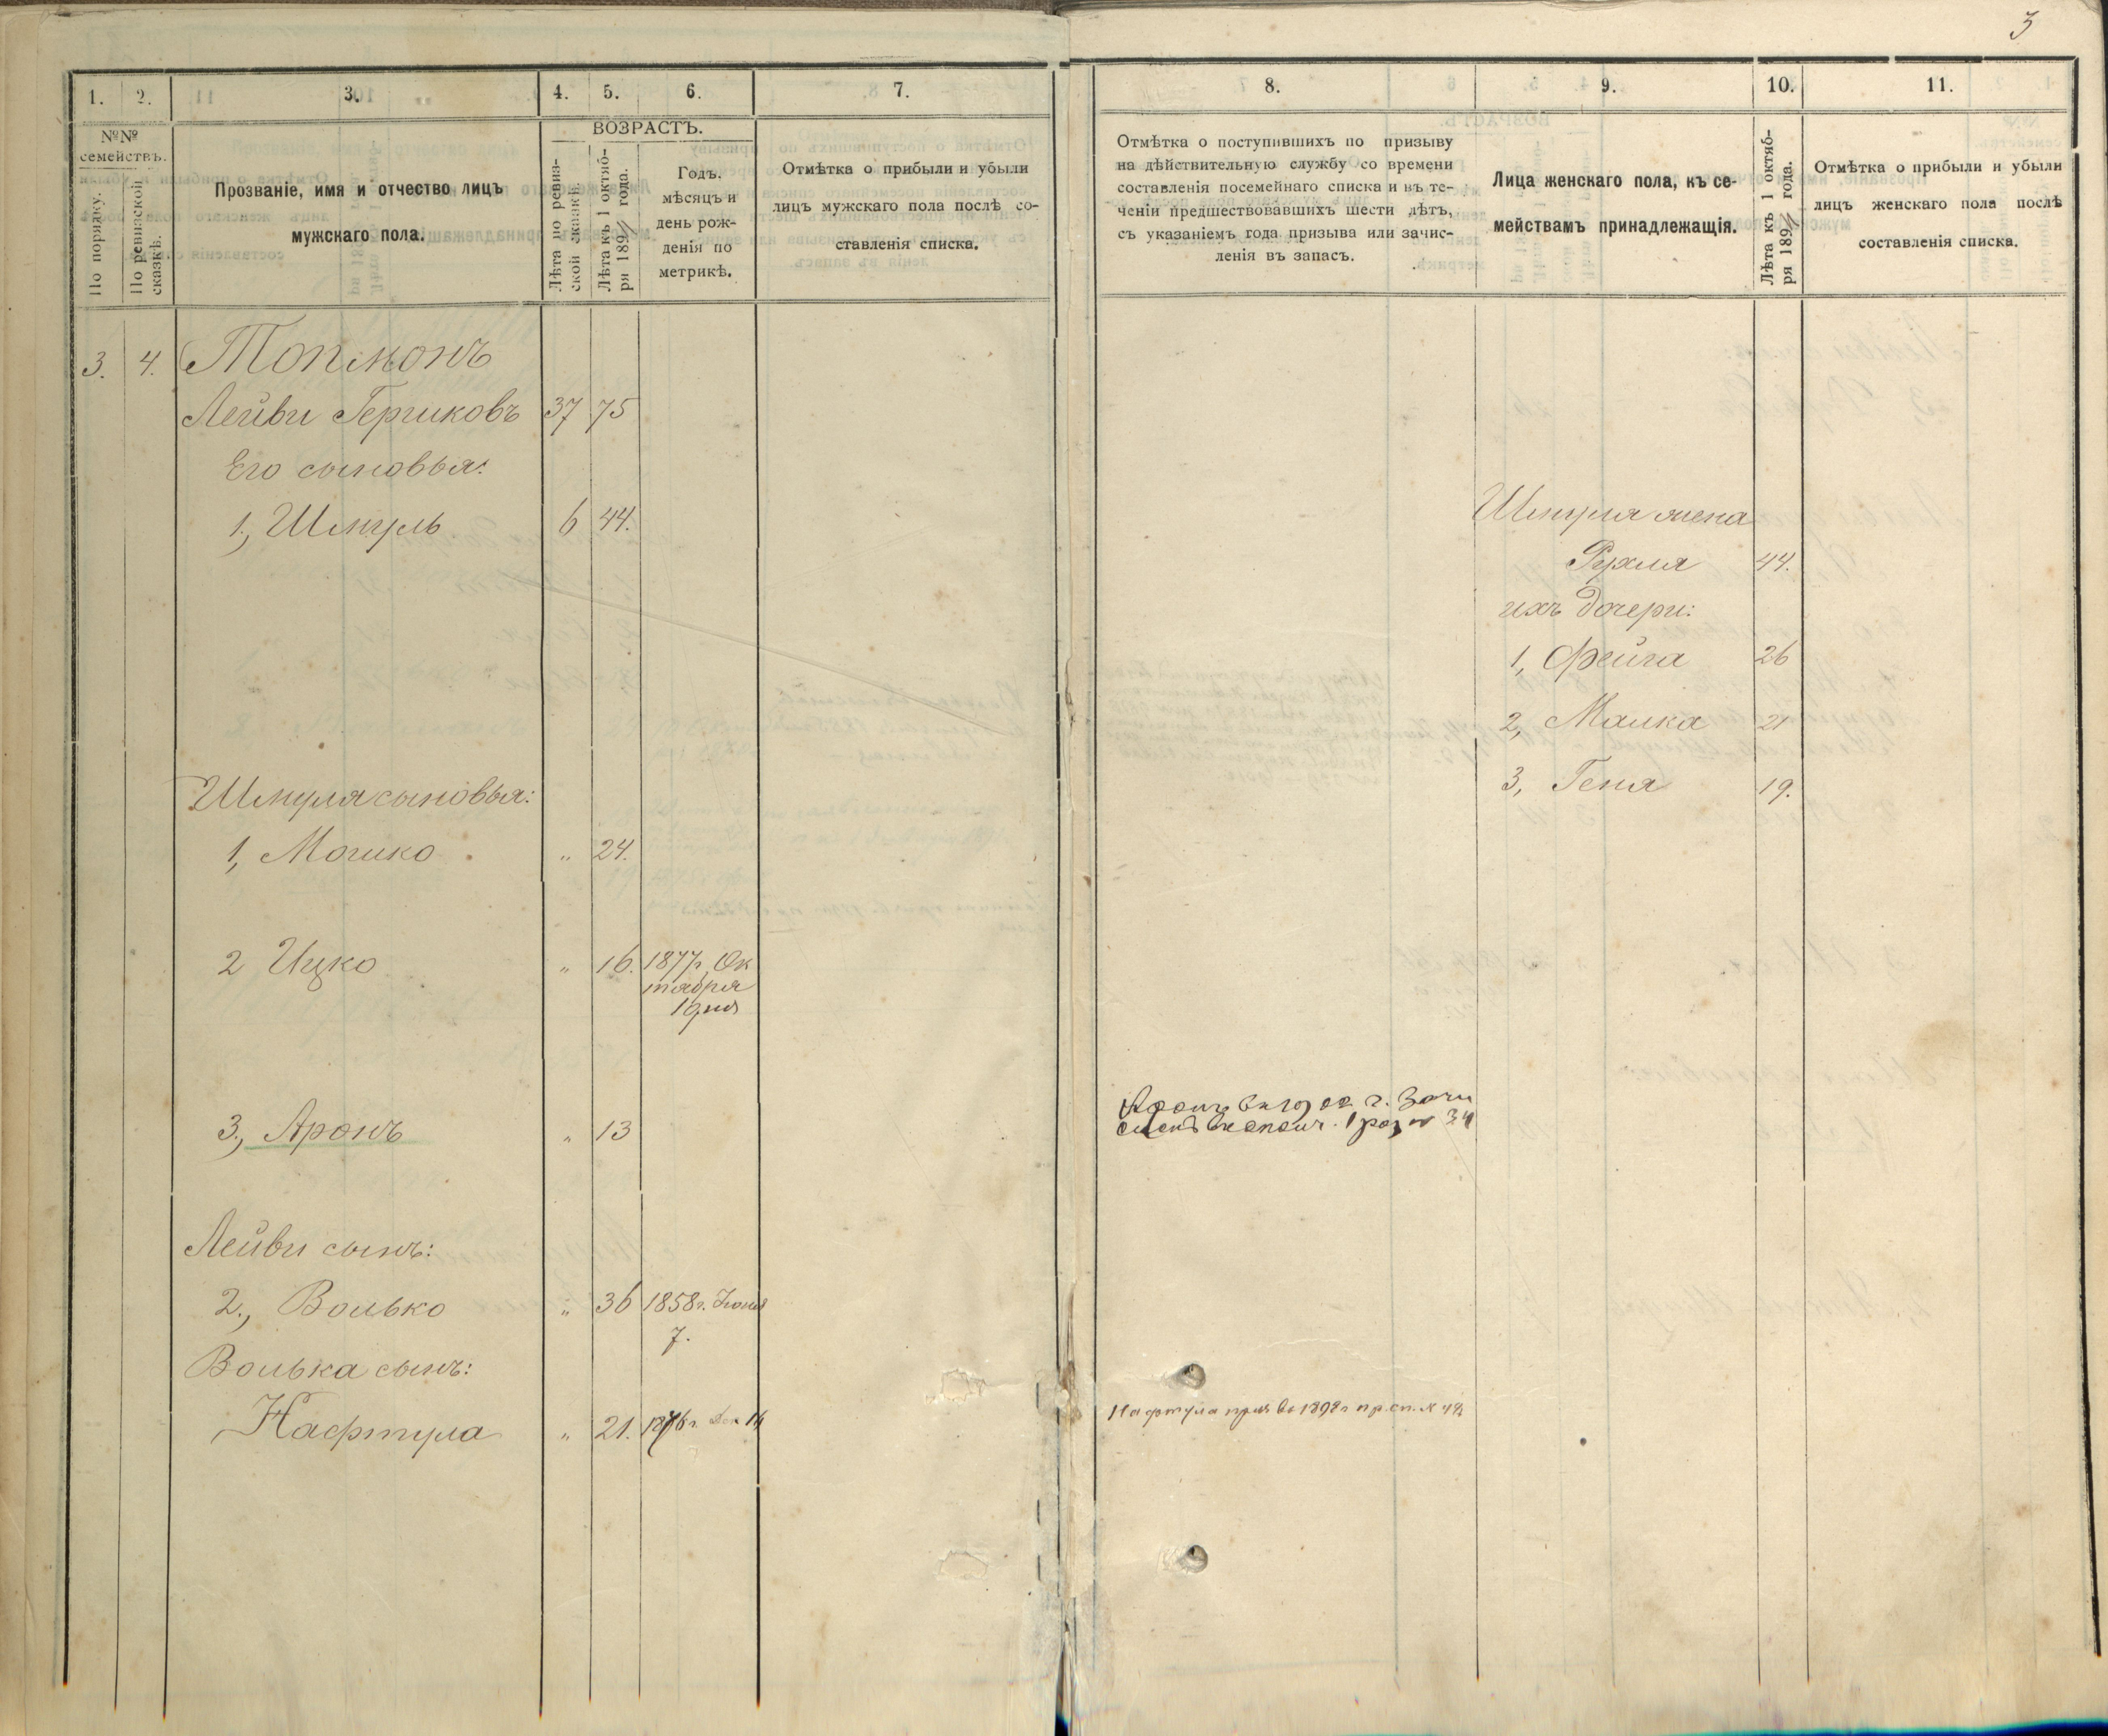 3
1.
2.
3.
4.
5.
6.
7.
№№
семействъ.
По порядку.
По ревизской
сказкѣ.
Прозваніе, имя и отчество лицъ
мужскаго пола.
ВОЗРАСТЪ.
Лѣта по ревиз-
ской сказкѣ.
Лѣта къ 1 октяб-
ря 189 года.
Годъ,
мѣсяцъ и
день рож-
денія по
метрикѣ.
Отмѣтка о прибыли и убыли
лицъ мужскаго пола послѣ со-
ставленія списка.
3. 4. Топмонъ
Лейви Гершковъ 37 75
Его сыновья:
1, Шмуль 6 44.
Шмуля сыновья:
1, Мошко " 24.
2 Ицко " 16. 1877г. Ок
тября
1 дня
3, Аронъ " 13
Лейви сынъ:
2., Волько " 36 1858г. Іюня
7.
Волька сынъ:
Нафтула " 21. 1876г. Дек 14
8.
9.
10.
11.
Отмѣтка о поступившихъ по призыву
на дѣйствительную службу со времени
составленія посемейнаго списка и въ те-
ченіи предшествовавшихъ шести лѣтъ,
съ указаніемъ года призыва или зачис-
ленія въ запасъ.
Лица женскаго пола, къ се-
мействамъ принадлежащія.
Лѣта къ 1 октяб-
ря 189 года.
Отмѣтка о прибыли и убыли
лицъ женскаго пола послѣ
составленія списка.
Шмуля жена
Рухля 44.
ихъ дочери:
1, Фейга 26
2, Малка 21
3, Геня 19.
Аронъ г. Зачи
сленъ въ ополч. 1 раз 34
Нафтула приз въ 1898г пр.сп. №